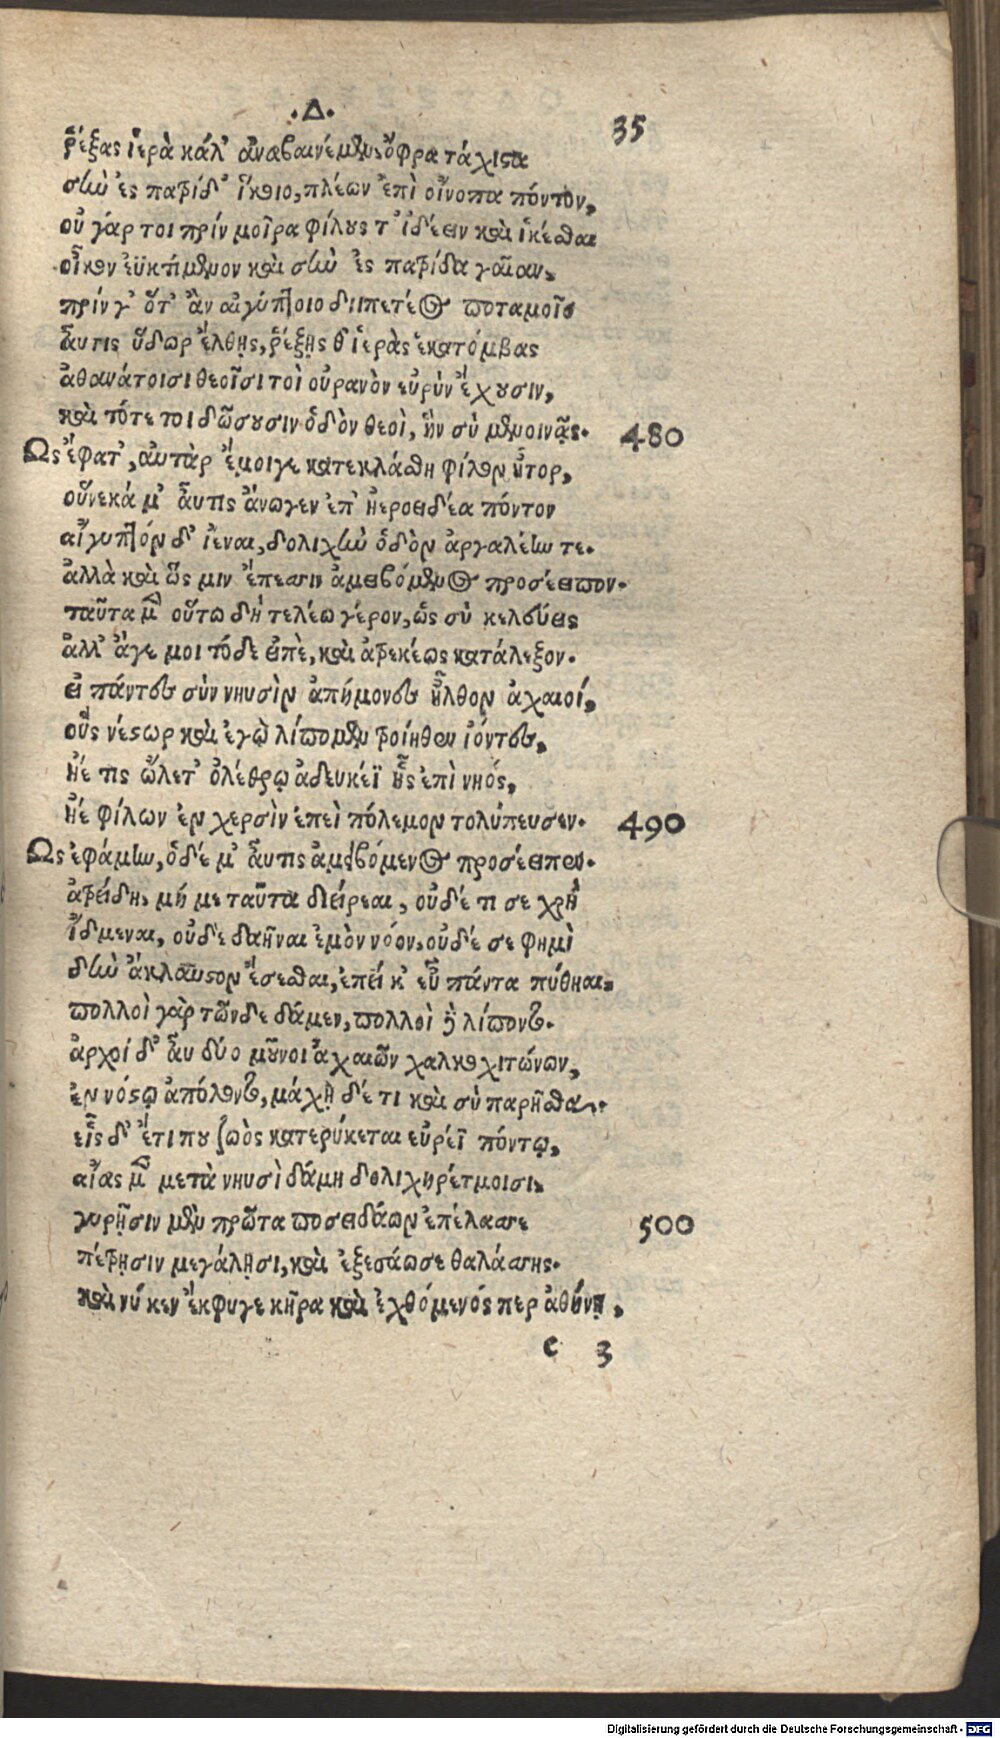 .Δ.
35
ῥέξας ἱερὰ κάλ' ἀναβαινέμεν, ὄφρα τάχιστα
σὴν ἐς πατρίδ' ἵκοιο, πλέων ἐπὶ οἴνοπα πόντον,
οὐ γάρ τοι πρίν μοῖρα φίλους τ' ἰδέειν καὶ ἱκέσθαι
οἶκον ἐϋκτήμενον καὶ σὴν ἐς πατρίδα γαῖαν.
πρίν γ' ὅτ' ἂν αἰγύπτοιο διιπετέος ποταμοῖο
αὖτις ὕδωρ ἔλθῃς, ῥέξῃς θ' ἱερὰς ἑκατόμβας
ἀθανάτοισι θεοῖσι τοὶ οὐρανὸν εὐρὺν ἔχουσιν,
καὶ τότε τοι δώσουσιν ὁδὸν θεοὶ, ἣν σὺ μενοινᾷς. 480
Ως ἔφατ', αὐτὰρ ἔμοιγε κατεκλάσθη φίλον ἦτορ,
οὕνεκά μ' αὖτις ἄνωγεν ἐπ' ἠεροειδέα πόντον
αἴγυπτόν δ' ἰέναι, δολιχὴν ὁδὸν ἀργαλέην τε.
ἀλλὰ καὶ ὥς μιν ἔπεσσιν ἀμειβόμενος προσέειπον.
ταῦτα μὲν οὕτω δὴ τελέω γέρον, ὡς σὺ κελεύεις
ἀλλ' ἄγε μοι τόδε εἰπὲ, καὶ ἀτρεκέως κατάλεξον.
εἰ πάντες σὺν νηυσὶν ἀπήμονες ἦλθον ἀχαιοί,
οὓς νέστωρ καὶ ἐγὼ λίπομεν τροίηθεν ἰόντες,
ἠέ τις ὤλετ' ὀλέθρῳ ἀδευκέϊ ἧς ἐπὶ νηός,
ἠέ φίλων ἐν χερσὶν ἐπεὶ πόλεμον τολύπευσεν. 490
Ως ἐφάμην, ὁ δέ μ' αὖτις ἀμειβόμενος προσέειπεν.
ἀτρείδη, μή με ταῦτα διείρεαι, οὐδέ τι σε χρὴ
ἴδμεναι, οὐδὲ δαῆναι ἐμὸν νόον, οὐδέ σε φημὶ
δὴν ἄκλαυστον ἔσεσθαι, ἐπεί κ' εὖ πάντα πύθηαι.
πολλοὶ γὰρ τῶνδε δάμεν, πολλοὶ δὲ λίποντο.
ἀρχοί δ' αὖ δύο μοῦνοι ἀχαιῶν χαλκοχιτώνων,
ἐν νόστῳ ἀπόλοντο, μάχῃ δέ τι καὶ σὺ παρῆσθα.
εἷς δ' ἔτι που ζωὸς κατερύκεται εὐρέϊ πόντῳ,
αἴας μὲν μετὰ νηυσὶ δάμη δολιχηρέτμοισι.
γυρῇσιν μὲν πρῶτα ποσειδάων ἐπέλασσε 500
πέτρῃσιν μεγάλῃσι, καὶ ἐξεσάωσε θαλάσσης.
καὶ νύ κεν ἔκφυγε κῆρα καὶ ἐχθόμενός περ ἀθήνῃ,
c 3
Digitalisierung gefördert durch die Deutsche Forschungsgemeinschaft - DFG